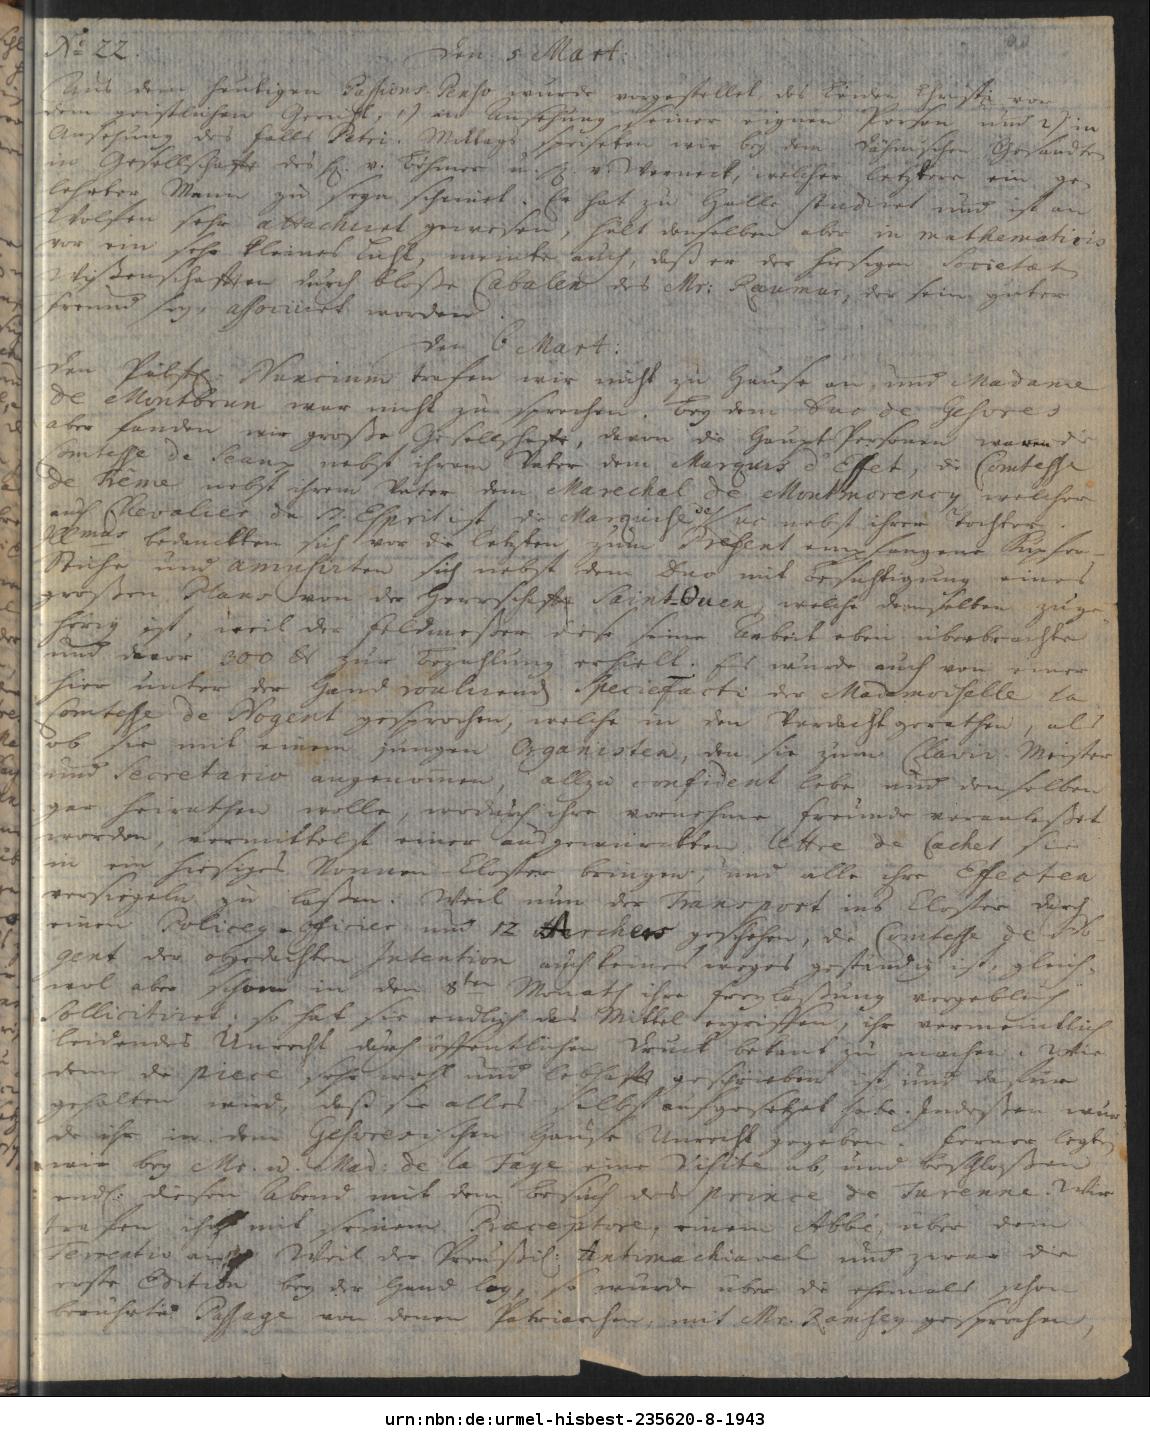 No 22.
den 5 Mart:
Aus dem heutigen Passions-Penso wurde vorgestellet das Leiden Christi vor
dem geistlichen Gericht, 1) in Ansehung seiner eignen Person und 2) in
Ansehung des Falls Petri. Mittags speiseten wir bey dem Dähnischen Gesandten
in Gesellschafft des H. v.Böhmer u. H. v. Werneck, welcher letztere ein ge-
lehrter Mann zu seyn scheinet. Er hat zu Halle studiret und ist an
Wolfen sehr attachiret gewesen, hält denselben aber in mathematicis
vor ein sehr kleines Licht, meinte auch, daß er der hiesigen Societæt
Wißenschafften durch bloße Cabalen des Mr: Reaumur, der sein guter
Freund sey, associiret worden.
den 6 Mart:
Den Päbstl: Nuncium trafen wir nicht zu Hause an, und Madame
de Montbrun war nicht zu sprechen. Bey dem Duc de Gesvres
aber fanden wir große Gesellschafft, davon die Haupt-Personen waren die
Comtesse de Seaux nebst ihrem Vater dem Marquis d'Effet, die Comtesse
de Têmé nebst ihrem Vater dem Marechal de Montmorency welcher
auch Chevalier du S. Esprit ist, die Marquise de nebst ihrer Tochter
bedanckten sich vor die letzten zum Present empfangene Kupfer-
Stiche und amusirten sich nebst dem Duc mit Besichtigung eines
großen Plans von der Herrschafft Saint-Ouen, welche demselben zuge-
hörig ist, weil der Feldmeßer diese seine Arbeit eben überbrachte
und davor 300 zur Bezahlung erhielt. Es wurde auch von einer
hier unter der Hand roulirend Specie Facti der Mademoiselle la
Comtesse de Nogent gesprochen, welche in den Verdacht gerathen, als
ob sie mit einem jungen Organisten, den sie zum Clavir-Meister
und Secretario angenommen, allzu confident lebe und denselben
gar heirathen wolle, wodurch ihre vornehme Freunde veranlaßet
worden, vermittelst einer ausgewürckten lettre de Cachet sie
in ein hiesiges Nonnen-Closter bringen, und alle ihre Effecten
versiegeln zu laßen. Weil nun der Transport ins Closter durch
einen Policey-officier und 12 Archers geschehen, die Comtesse de No-
gent der obgedachten Intention auch keines weges geständig ist, gleich-
wol aber schon in den 8ten Monath ihre Freylaßung vergeblich
sollicitiret: so hat sie endlich das Mittel ergriffen, ihr vermeintlich
leidendes Unrecht durch öffentlichen Druck bekant zu machen. Wie
denn die piece sehr wohl und lebhafft geschrieben ist und davor
gehalten wird, daß sie alles selbst aufgesetzet habe. Indeßen wur-
de ihr in dem Gesvresischen Hause Unrecht gegeben. Ferner legten
wir bey Mr. u. Mad: de la Faye eine Visite ab, und beschloßen
endl: diesen Abend mit dem Besuch des prince de Turenne. Wir
trafen ihn mit seinem Præceptore, einem Abbé, über dem
Terentio an. Weil der Preußis: Antimachiavel und zwar die
erste Edition bey der Hand lag, so wurde über die ehemals schon
berührte Passage von denen Patriarchen, mit Mr. Ramsey gesprochen,
urn:nbn:de:urmel-hisbest-235620-8-1943